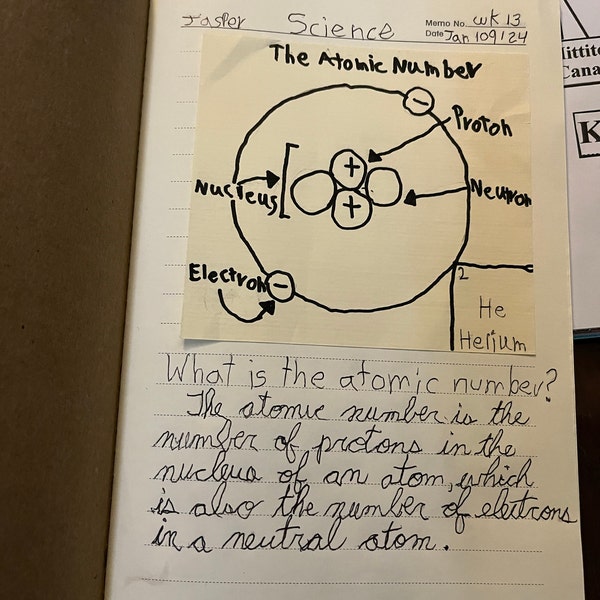 Jasper Science Memo No. wk 13
Date Jan 109124
The Atomic Number
Proton
Nucleus
Neutron
Electron
2
He
Helium
What is the atomic number?
The atomic number is the
number of protons in the
nucleus of an atom, which
is also the number of electrons
in a neutral atom.
+
+
-
-
K